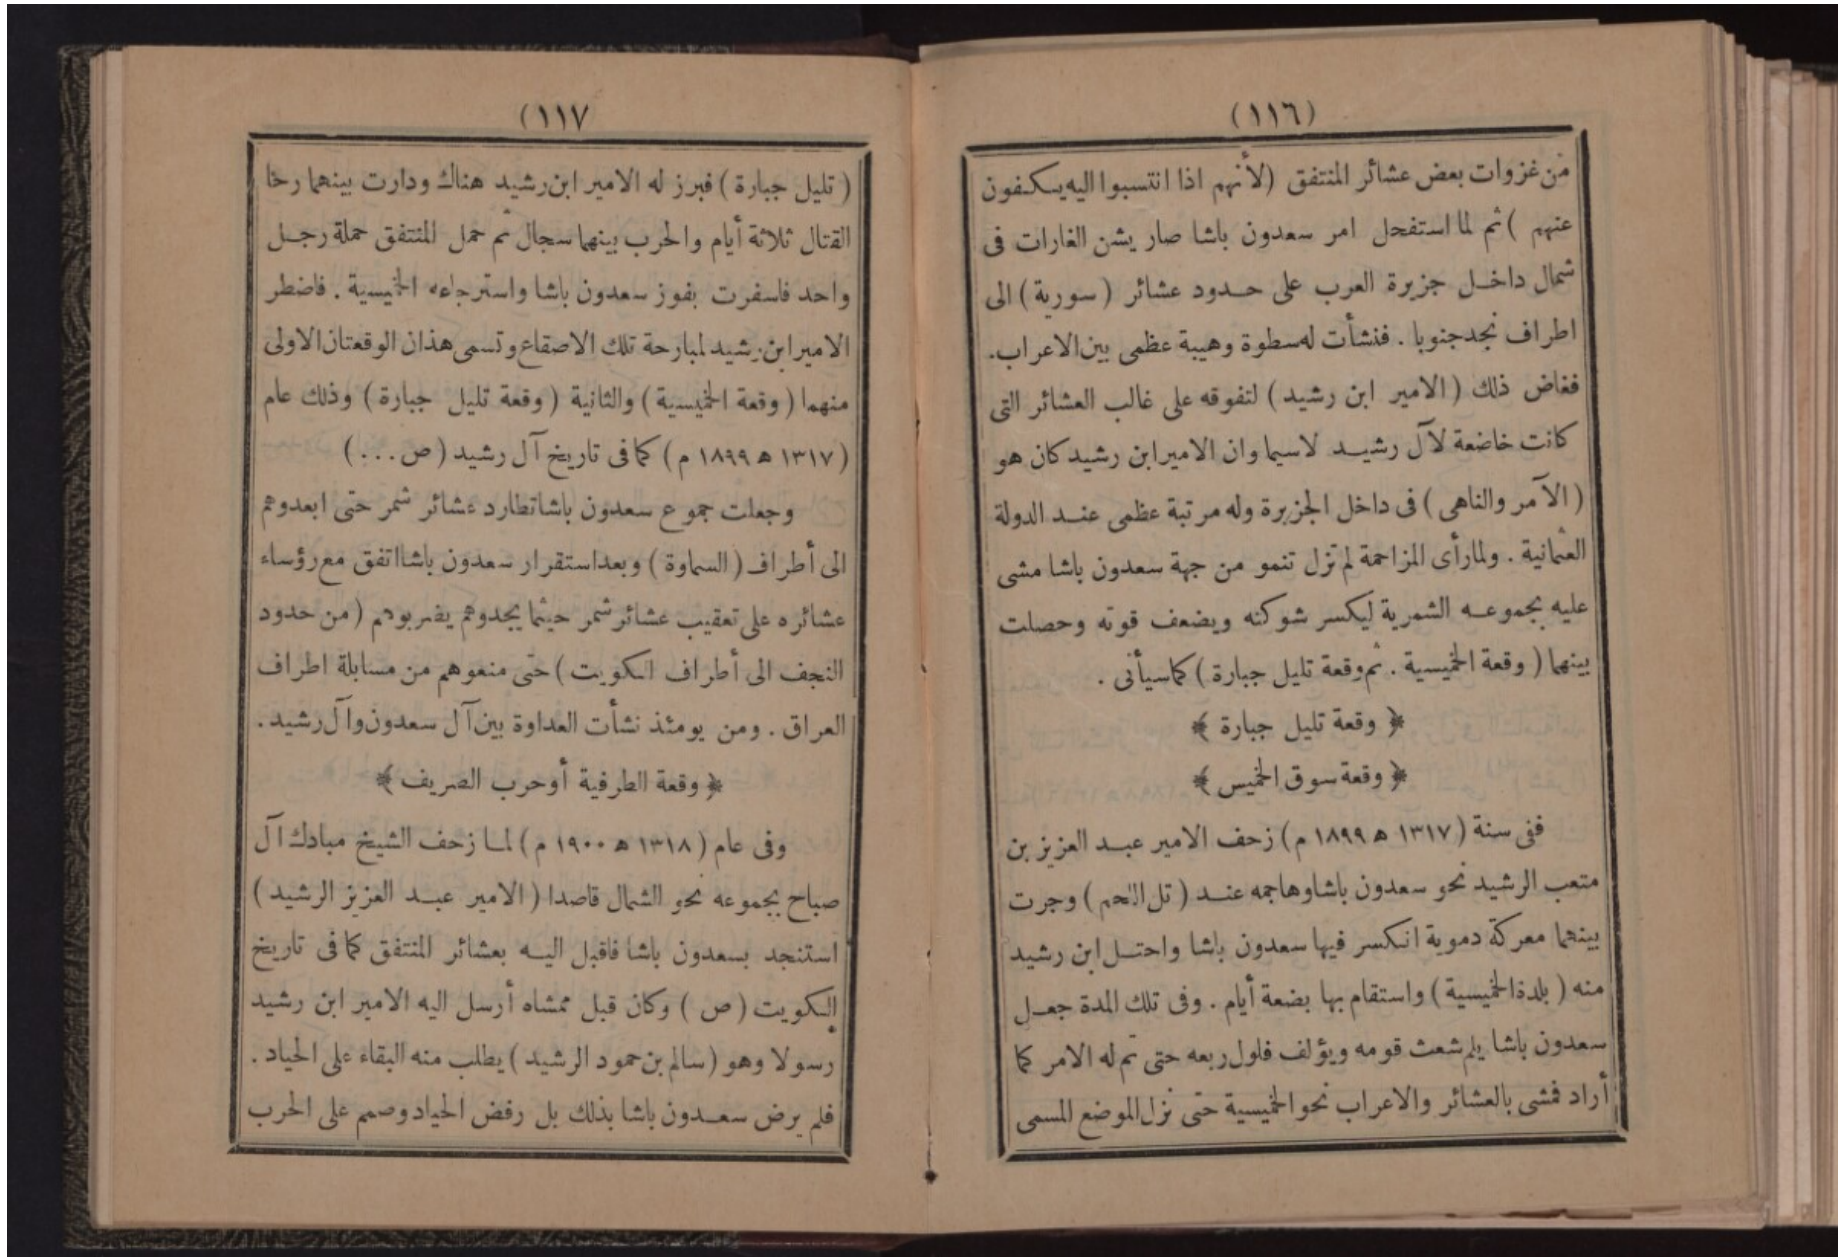 (١١٦)
من غزوات بعض عشائر المنتفق (لأنهم اذا انتسبوا اليه يكفون
عنهم ) ثم لما استفحل امر سعدون باشا صار يشن الغارات فى
شمال داخل جزيرة العرب على حدود عشائر ( سورية ) الى
اطراف نجد جنوبا . فنشأت له سطوة وهيبة عظمى بين الاعراب.
فغاض ذلك ( الامير ابن رشيد ) لتفوقه على غالب العشائر التى
كانت خاضعة لآل رشيد لاسيما وان الامير ابن رشيد كان هو
( الآمر والناهى ) فى داخل الجزيرة وله مرتبة عظمى عند الدولة
العثمانية . ولما رأى المزاحمة لم تزل تنمو من جهة سعدون باشا مشى
عليه بجموعه الشمرية ليكسر شوكته ويضعف قوته وحصلت
بينهما ( وقعة الخميسية . ثم وقعة تليل جبارة ) كما سيأتى .
﴿ وقعة تليل جبارة ﴾
﴿ وقعة سوق الخميس ﴾
ففى سنة ( ١٣١٧ ه ١٨٩٩ م ) زحف الامير عبد العزيز بن
متعب الرشيد نحو سعدون باشا وهاجمه عند ( تل اللحم ) وجرت
بينهما معركة دموية انكسر فيها سعدون باشا واحتل ابن رشيد
منه ( بلدة الخميسية ) واستقام بها بضعة أيام . وفى تلك المدة جعل
سعدون باشا يلم شعث قومه ويؤلف فلول ربعه حتى تم له الامر كما
أراد فمشى بالعشائر والاعراب نحو الخميسية حتى نزل الموضع المسمى
(١١٧
( تليل جبارة ) فبرز له الامير ابن رشيد هناك ودارت بينهما رحا
القتال ثلاثة أيام والحرب بينهما سجال ثم حمل المنتفق حملة رجل
واحد فاسفرت بفوز سعدون باشا واسترجاعه الخميسية . فاضطر
الامير ابن رشيد لمبارحة تلك الاصقاع وتسمى هذان الوقعتان الاولى
منهما ( وقعة الخميسية ) والثانية ( وقعة تليل جبارة ) وذلك عام
( ١٣١٧ ه ١٨٩٩ م ) كما فى تاريخ آل رشيد ( ص ... )
وجعلت جموع سعدون باشا تطارد عشائر شمر حتى ابعدوهم
الى أطراف ( السماوة ) وبعد استقرار سعدون باشا اتفق مع رؤساء
عشائره على تعقيب عشائر شمر حيثما يجدوهم يضربوهم ( من حدود
النجف الى أطراف الكويت ) حتى منعوهم من مسابلة اطراف
العراق . ومن يومئذ نشأت العداوة بين آل سعدون وآل رشيد .
﴿ وقعة الطرفية أو حرب الصريف ﴾
وفى عام ( ١٣١٨ ه ١٩٠٠ م ) لما زحف الشيخ مبادك آل
صباح بجموعه نحو الشمال قاصدا ( الامير عبد العزيز الرشيد )
استنجد بسعدون باشا فاقبل اليه بعشائر المنتفق كما فى تاريخ
الكويت ( ص ) وكان قبل ممشاه أرسل اليه الامير ابن رشيد
رسولا وهو ( سالم بن حمود الرشيد ) يطلب منه البقاء على الحياد .
فلم يرض سعدون باشا بذلك بل رفض الحياد وصمم على الحرب